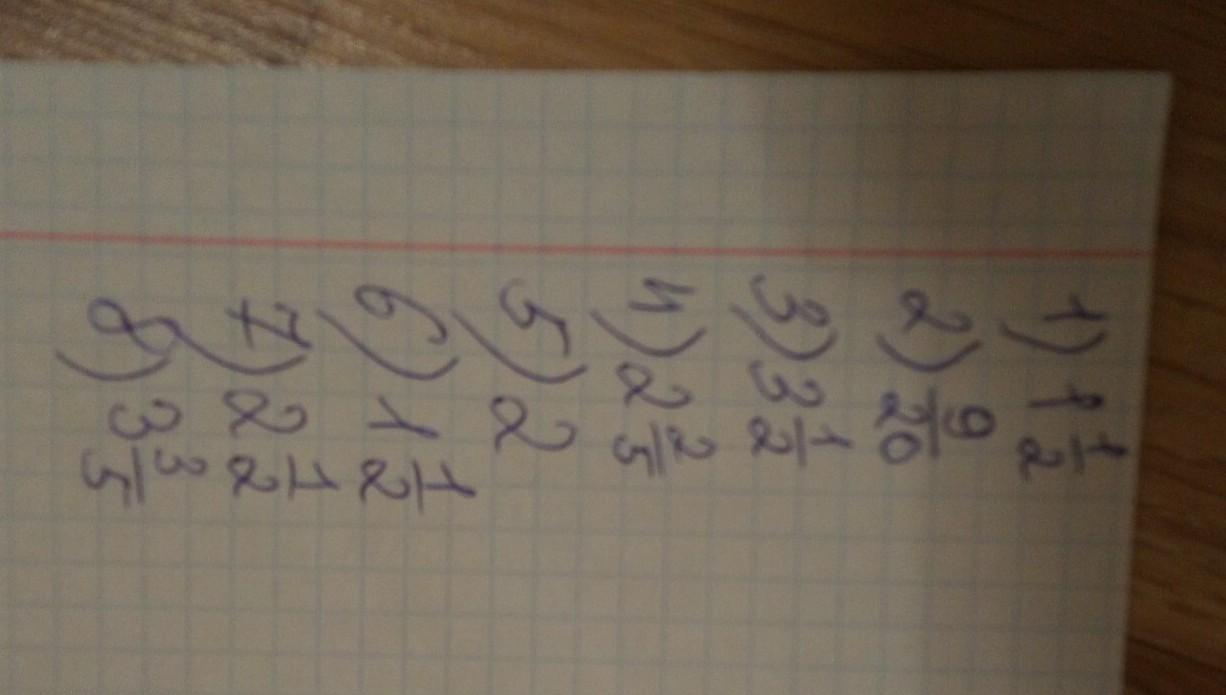 1) 1 1/2
2) 9/20
3) 3 1/2
4) 2 2/5
5) 2
6) 1 1/2
7) 2 1/2
8) 3 3/5